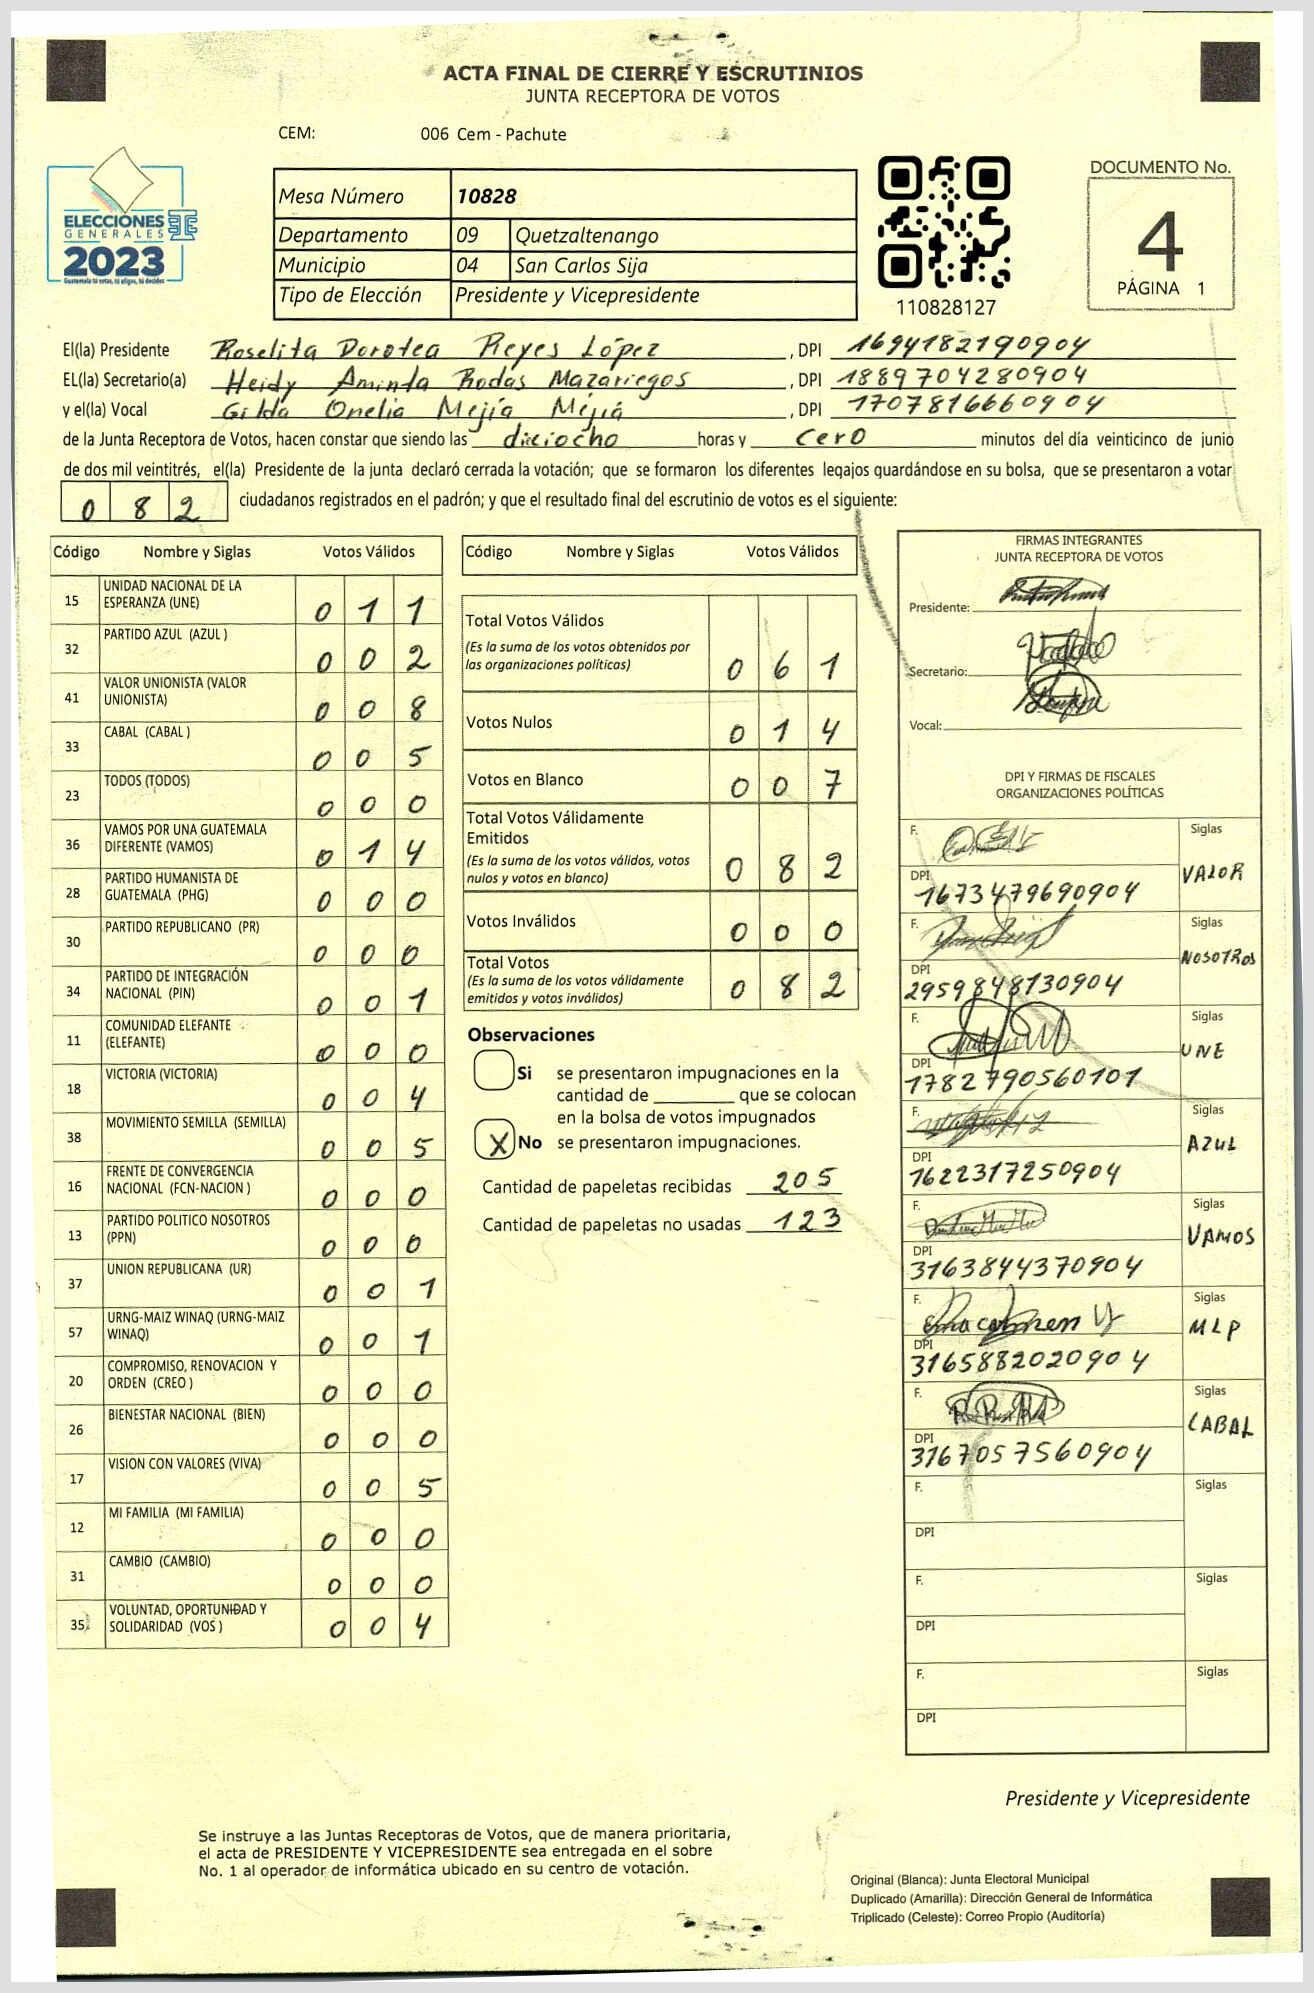 ACTA FINAL DE CIERRE Y ESCRUTINIOS
JUNTA RECEPTORA DE VOTOS
CEM: 006 Cem - Pachute
ELECCIONES
GENERALES
2023
Guatemala tú votas, tú eliges, tú decides
Mesa Número 10828
Departamento 09 Quetzaltenango
Municipio 04 San Carlos Sija
Tipo de Elección Presidente y Vicepresidente
110828127
DOCUMENTO No.
4
PÁGINA 1
El(la) Presidente Roselita Dorotea Reyes López, DPI 1694182190904
EL(la) Secretario(a) Heidy Aminta Rodas Mazariegos, DPI 1889704280904
y el(la) Vocal Gilda Onelia Mejía Mejía, DPI 1707816660904
de la Junta Receptora de Votos, hacen constar que siendo las dieciocho horas y cero minutos del día veinticinco de junio
de dos mil veintitrés, el(la) Presidente de la junta declaró cerrada la votación; que se formaron los diferentes legajos guardándose en su bolsa, que se presentaron a votar
082 ciudadanos registrados en el padrón; y que el resultado final del escrutinio de votos es el siguiente:
Código Nombre y Siglas Votos Válidos
15 UNIDAD NACIONAL DE LA ESPERANZA (UNE) 0 1 1
32 PARTIDO AZUL (AZUL ) 0 0 2
41 VALOR UNIONISTA (VALOR UNIONISTA) 0 0 8
33 CABAL (CABAL ) 0 0 5
23 TODOS (TODOS) 0 0 0
36 VAMOS POR UNA GUATEMALA DIFERENTE (VAMOS) 0 1 4
28 PARTIDO HUMANISTA DE GUATEMALA (PHG) 0 0 0
30 PARTIDO REPUBLICANO (PR) 0 0 0
34 PARTIDO DE INTEGRACIÓN NACIONAL (PIN) 0 0 1
11 COMUNIDAD ELEFANTE (ELEFANTE) 0 0 0
18 VICTORIA (VICTORIA) 0 0 4
38 MOVIMIENTO SEMILLA (SEMILLA) 0 0 5
16 FRENTE DE CONVERGENCIA NACIONAL (FCN-NACION ) 0 0 0
13 PARTIDO POLITICO NOSOTROS (PPN) 0 0 0
37 UNION REPUBLICANA (UR) 0 0 1
57 URNG-MAIZ WINAQ (URNG-MAIZ WINAQ) 0 0 1
20 COMPROMISO, RENOVACION Y ORDEN (CREO ) 0 0 0
26 BIENESTAR NACIONAL (BIEN) 0 0 0
17 VISION CON VALORES (VIVA) 0 0 5
12 MI FAMILIA (MI FAMILIA) 0 0 0
31 CAMBIO (CAMBIO) 0 0 0
35 VOLUNTAD, OPORTUNIDAD Y SOLIDARIDAD (VOS ) 0 0 4
Código Nombre y Siglas Votos Válidos
Total Votos Válidos
(Es la suma de los votos obtenidos por las organizaciones políticas) 0 6 1
Votos Nulos 0 1 4
Votos en Blanco 0 0 7
Total Votos Válidamente Emitidos
(Es la suma de los votos válidos, votos nulos y votos en blanco) 0 8 2
Votos Inválidos 0 0 0
Total Votos
(Es la suma de los votos válidamente emitidos y votos inválidos) 0 8 2
Observaciones
Si se presentaron impugnaciones en la
cantidad de ________ que se colocan
en la bolsa de votos impugnados
X No se presentaron impugnaciones.
Cantidad de papeletas recibidas 205
Cantidad de papeletas no usadas 123
FIRMAS INTEGRANTES
JUNTA RECEPTORA DE VOTOS
Presidente:
Secretario:
Vocal:
DPI Y FIRMAS DE FISCALES
ORGANIZACIONES POLÍTICAS
F. Siglas
DPI 1673479690904 VALOR
F. Siglas
DPI 2959848130904 NOSOTROS
F. Siglas
DPI 1782790560101 UNE
F. Siglas
DPI 1622317250904 AZUL
F. Siglas
DPI 3163844370904 VAMOS
F. Siglas
DPI 3165882020904 MLP
F. Siglas
DPI 3167057560904 CABAL
F. Siglas
DPI
F. Siglas
DPI
F. Siglas
DPI
Presidente y Vicepresidente
Se instruye a las Juntas Receptoras de Votos, que de manera prioritaria,
el acta de PRESIDENTE Y VICEPRESIDENTE sea entregada en el sobre
No. 1 al operador de informática ubicado en su centro de votación.
Original (Blanca): Junta Electoral Municipal
Duplicado (Amarilla): Dirección General de Informática
Triplicado (Celeste): Correo Propio (Auditoría)